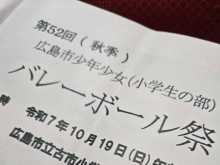 第52回(秋季)
広島市少年少女(小学生の部)
バレーボール祭
時 令和7年10月19日(日)午
広島市立古市小学